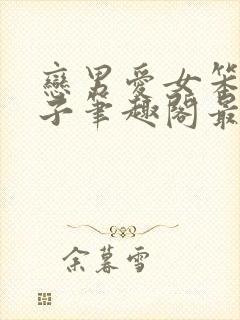 戀男愛女笨
子筆趣閣最
余暮雪